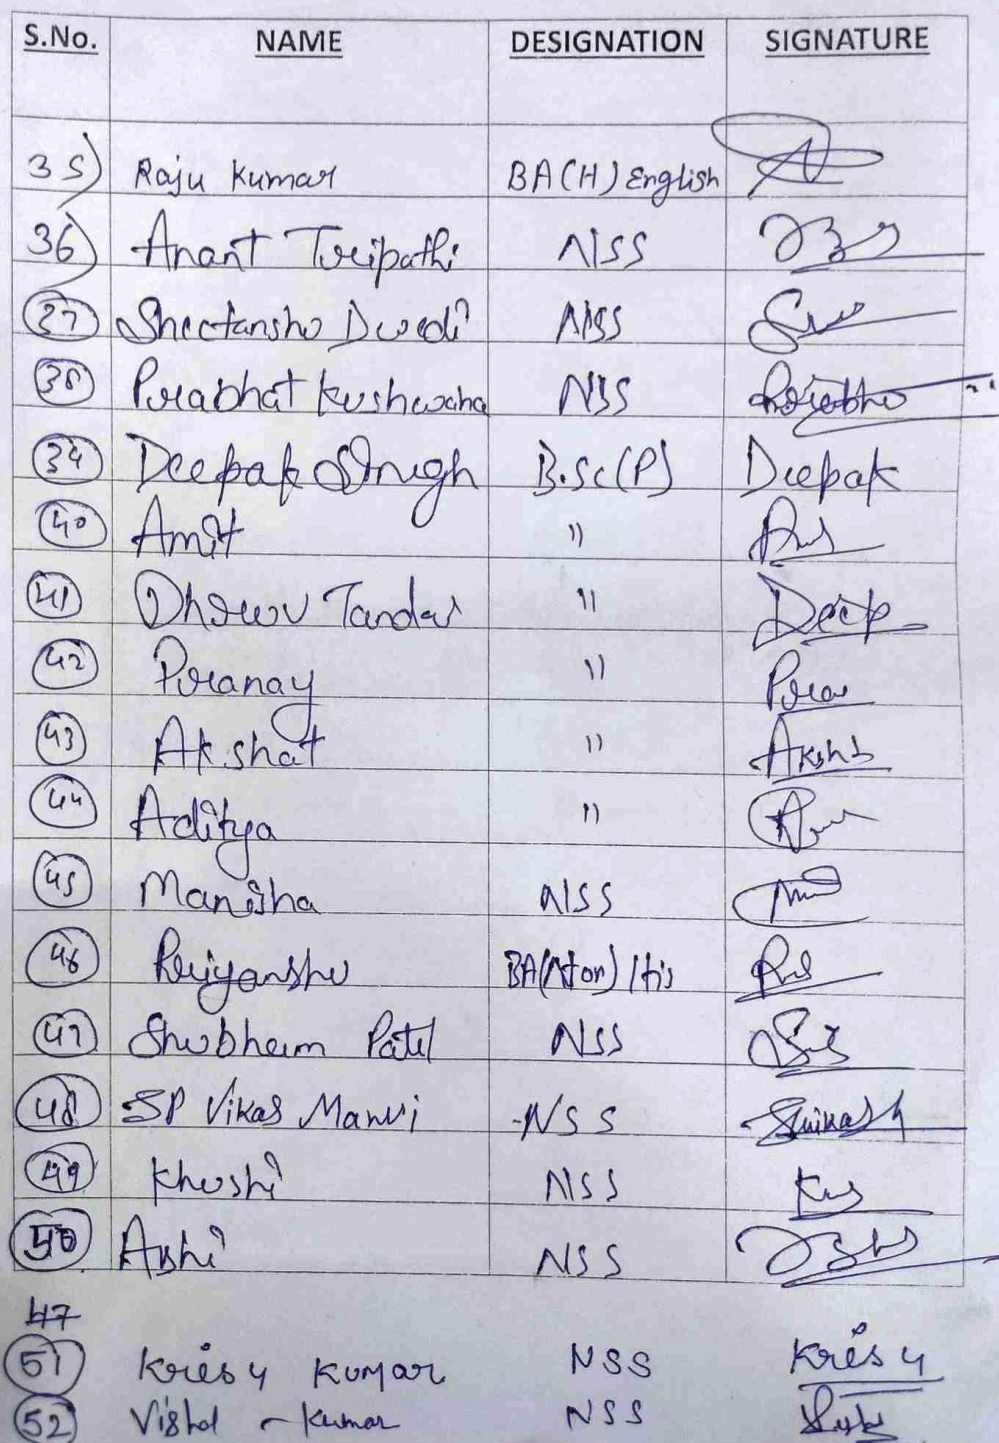 S.No. NAME DESIGNATION SIGNATURE
35) Raju Kumar BA(H) English
36) Anant Tripathi NSS
37 Sheetansho Dwedi NSS
38 Prabhat Kushwaha NSS
39 Deepak Singh B.Sc(P) Deepak
40 Amit "
41 Dhruv Tandai " Deep
42 Pranay " Pra
43 Akshat " Aksh
44 Aditya "
45 Manisha NSS
46 Priyanshu BA(Hon) His
47 Shubham Patel NSS
48 SP Vikas Manvi NSS
49 Khushi NSS
50 Ashi NSS
47
51 Krisy Kumar NSS Krisy
52 Vishal Kumar NSS